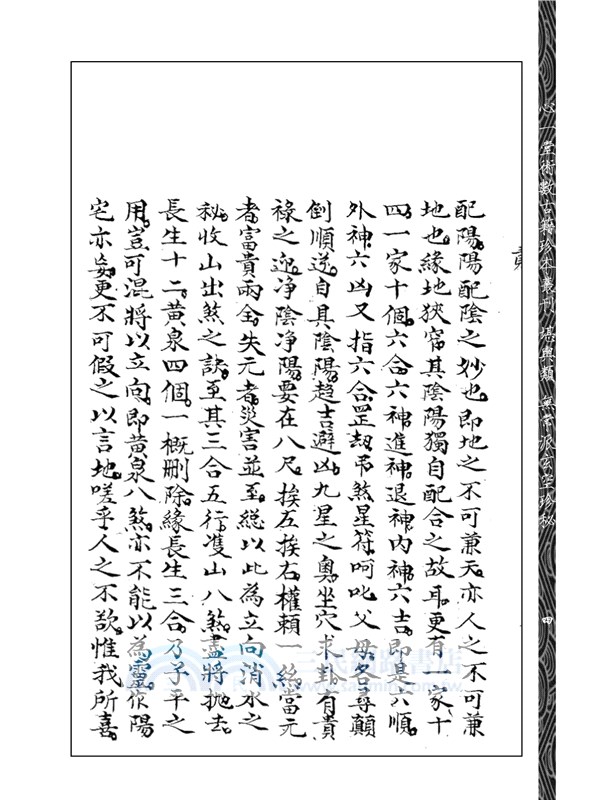 心一堂術數古籍珍本叢刊 堪輿類 無常派玄空珍秘
四
配陽陽配陰之妙也即地之不可兼天亦人之不可兼
地也緣地狹窄其陰陽獨自配合之故耳更有一家十
四一家十個六合六神進神退神內神六吉即是六順
外神六凶又指六合罡刼弔煞星符呵叱父母名尊顛
倒順逆自具陰陽趨吉避凶九星之奧坐穴求卦有貴
祿之迎净陰净陽要在八尺挨左挨右權賴一絲當元
者富貴兩全失元者災害並至総以此為立向消水之
秘收山出煞之訣至其三合五行雙山八煞盡將拋去
長生十二黃泉四個一概删除緣長生三合乃子平之
用豈可混將以立向即黃泉八煞亦不能以為靈作陽
宅亦妄更不可假之以言地嗟乎人之不欲惟我所喜